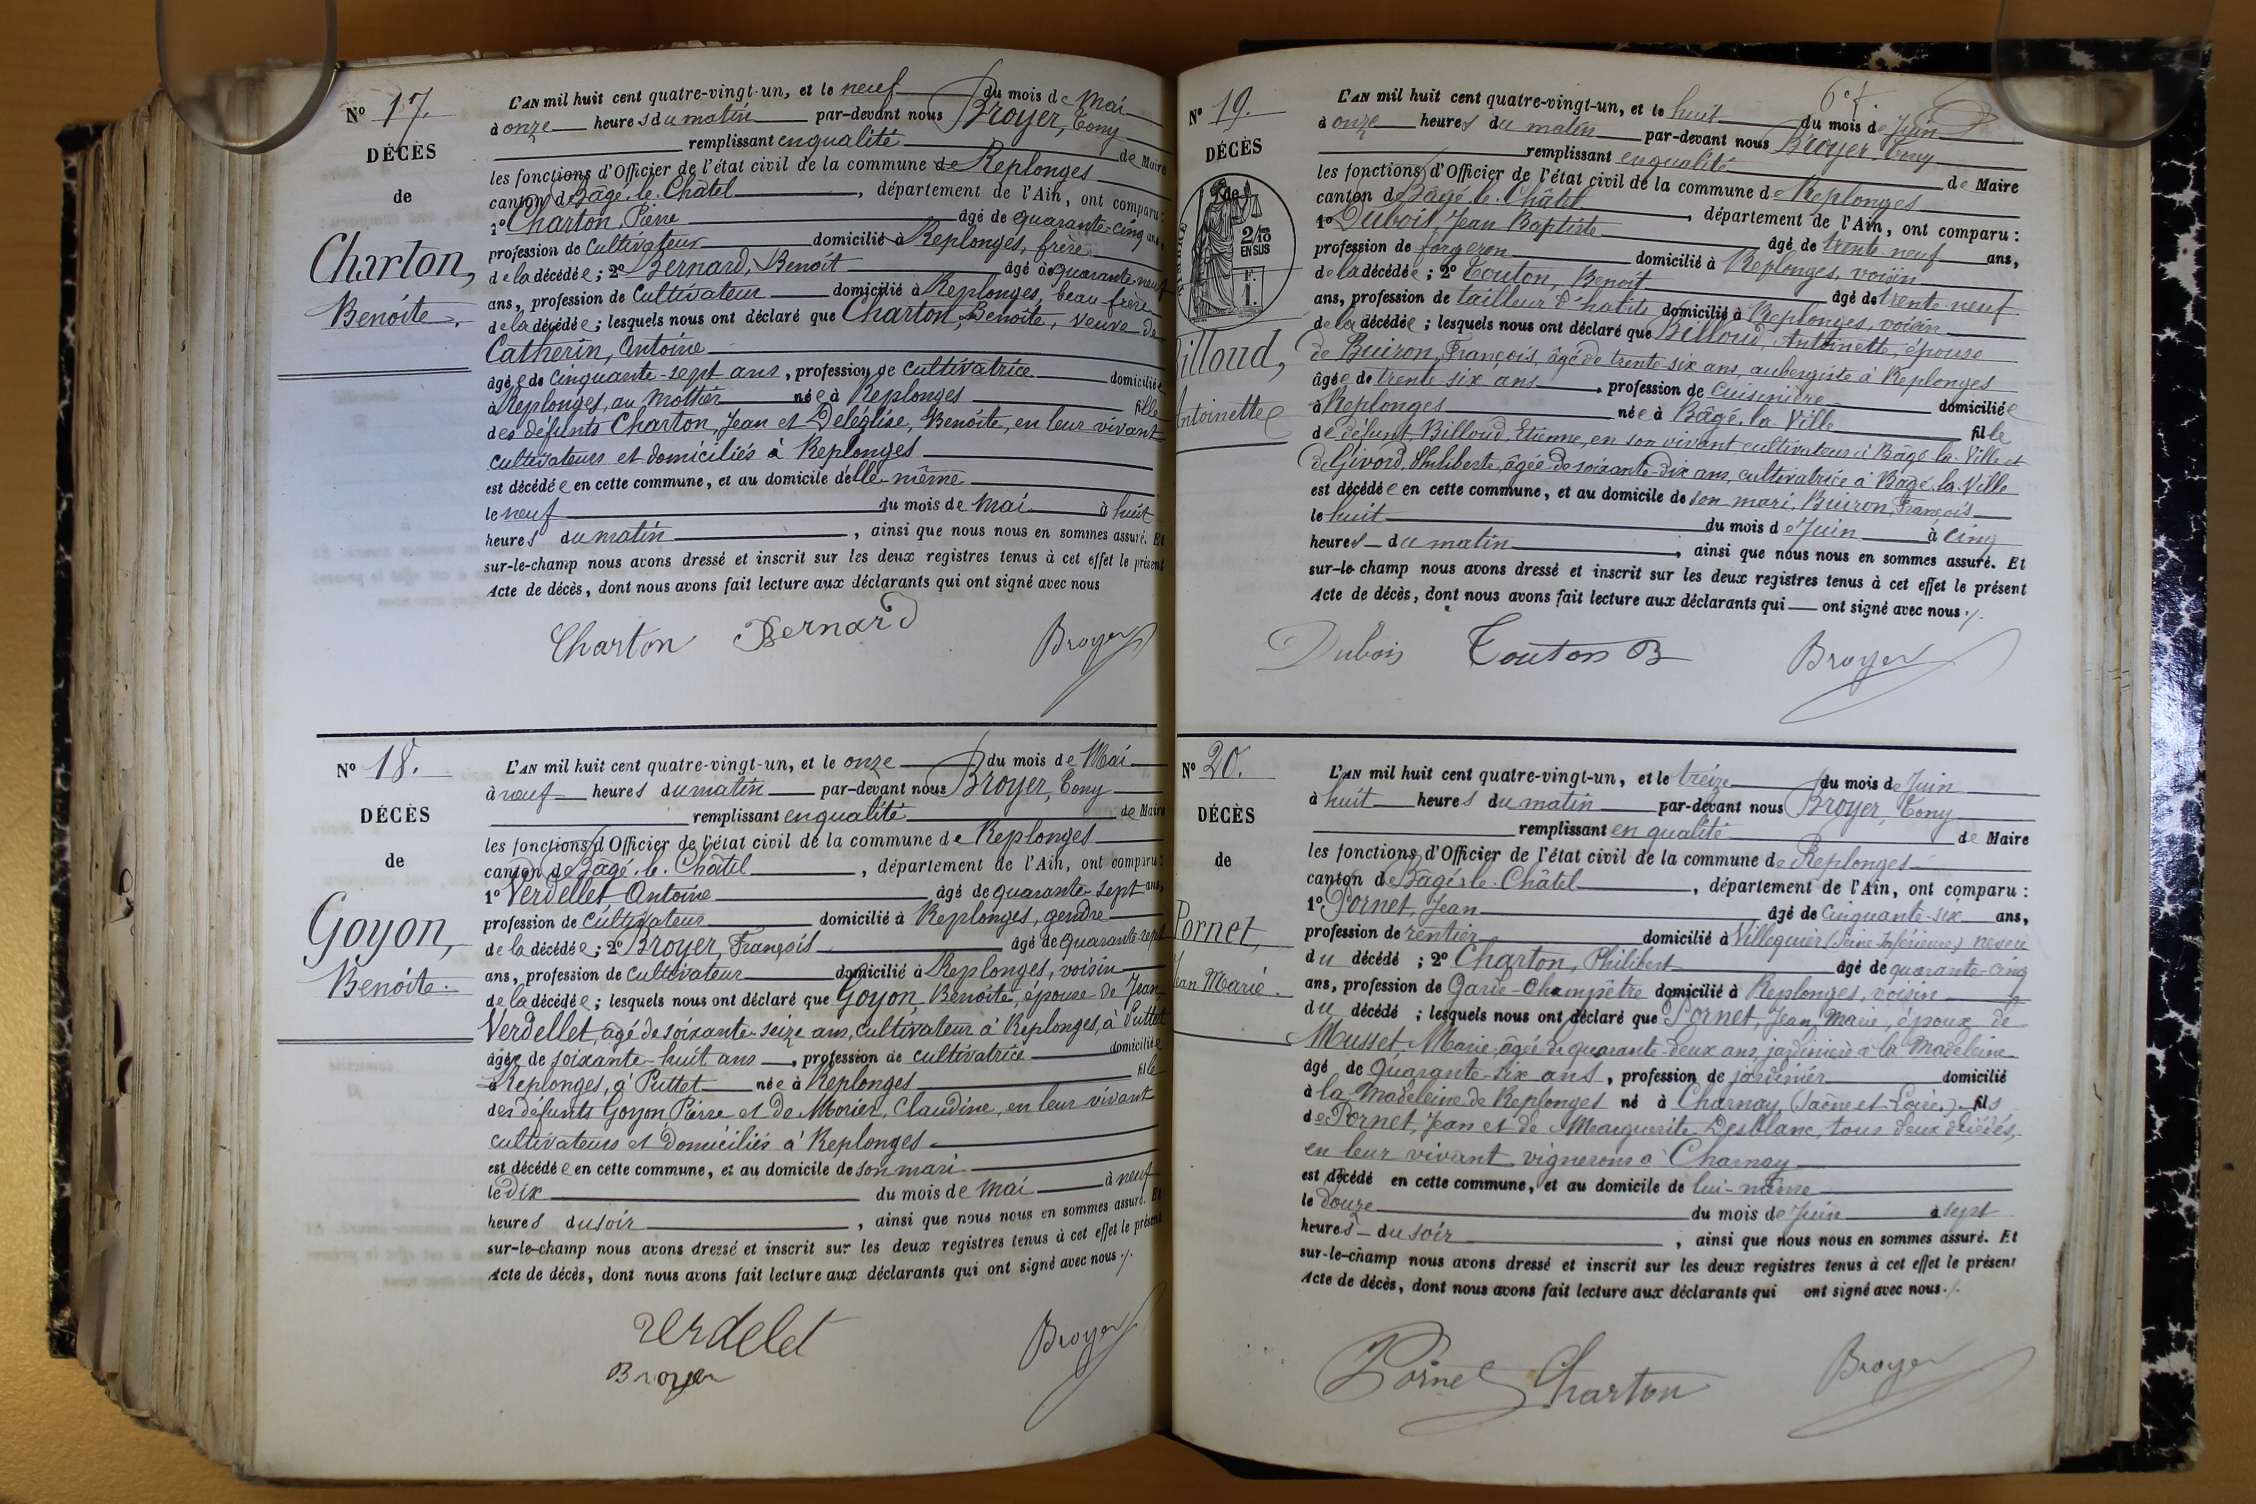 Nº 17.
DÉCÈS
de
Charton,
Benoite.
L'AN mil huit cent quatre-vingt-un, et le neuf du mois de Mai
à onze heures du matin par-devant nous Broyer, Tony
remplissant en qualité de Maire
les fonctions d'Officier de l'état civil de la commune de Replonges
canton de Bâgé-le-Châtel, département de l'Ain, ont comparu:
1º Charton, Pierre âgé de quarante-cinq ans,
profession de Cultivateur domicilié à Replonges, frère
de la décédée; 2º Bernard, Benoit âgé de quarante-neuf
ans, profession de Cultivateur domicilié à Replonges, beau-frère
de la décédée; lesquels nous ont déclaré que Charton, Benoite, veuve de
Catherin, Antoine
âgée de cinquante-sept ans, profession de cultivatrice domiciliée
à Replonges, au Mottier née à Replonges fille
des défunts Charton, Jean et Deléglise, Benoite, en leur vivant
cultivateurs et domiciliés à Replonges
est décédée en cette commune, et au domicile d'elle-même
le neuf du mois de Mai à huit
heures du matin, ainsi que nous nous en sommes assuré. Et
sur-le-champ nous avons dressé et inscrit sur les deux registres tenus à cet effet le présent
Acte de décès, dont nous avons fait lecture aux déclarants qui ont signé avec nous
Charton Bernard Broyer
Nº 18.
DÉCÈS
de
Goyon,
Benoite.
L'AN mil huit cent quatre-vingt-un, et le onze du mois de Mai
à neuf heures du matin par-devant nous Broyer, Tony
remplissant en qualité de Maire
les fonctions d'Officier de l'état civil de la commune de Replonges
canton de Bâgé-le-Châtel, département de l'Ain, ont comparu:
1º Verdellet Antoine âgé de quarante-sept ans,
profession de cultivateur domicilié à Replonges, gendre
de la décédée; 2º Broyer, François âgé de quarante-sept
ans, profession de cultivateur domicilié à Replonges, voisin
de la décédée; lesquels nous ont déclaré que Goyon, Benoite, épouse de Jean
Verdellet, âgé de soixante-seize ans, cultivateur à Replonges, à Puttet
âgée de soixante-huit ans, profession de cultivatrice domiciliée
à Replonges, à Puttet née à Replonges fille
des défunts Goyon, Pierre et de Morier, Claudine, en leur vivant
cultivateurs et domiciliés à Replonges
est décédée en cette commune, et au domicile de son mari
le dix du mois de Mai à neuf
heures du soir, ainsi que nous nous en sommes assuré. Et
sur-le-champ nous avons dressé et inscrit sur les deux registres tenus à cet effet le présent
Acte de décès, dont nous avons fait lecture aux déclarants qui ont signé avec nous ./.
Verdelet
Broyer
Broyer
6e f.
Nº 19.
DÉCÈS
de
2/10
EN SUS
Billoud,
Antoinette
L'AN mil huit cent quatre-vingt-un, et le huit du mois de Juin
à onze heures du matin par-devant nous Broyer, Tony
remplissant en qualité de Maire
les fonctions d'Officier de l'état civil de la commune de Replonges
canton de Bâgé-le-Châtel, département de l'Ain, ont comparu:
1º Dubois, Jean Baptiste âgé de trente-neuf ans,
profession de forgeron domicilié à Replonges, voisin
de la décédée; 2º Touton, Benoit âgé de trente-neuf
ans, profession de tailleur d'habits domicilié à Replonges, voisin
de la décédée; lesquels nous ont déclaré que Billoud, Antoinette, épouse
de Buiron, François, âgé de trente-six ans, aubergiste à Replonges
âgée de trente six ans, profession de Cuisinière domiciliée
à Replonges née à Bâgé-la-Ville fille
de défunt Billoud, Etienne, en son vivant cultivateur à Bâgé-la-Ville et
de Givord, Philiberte, âgée de soixante-dix ans, cultivatrice à Bâgé-la-Ville
est décédée en cette commune, et au domicile de son mari, Buiron, François
le huit du mois de Juin à cinq
heures du matin, ainsi que nous nous en sommes assuré. Et
sur-le-champ nous avons dressé et inscrit sur les deux registres tenus à cet effet le présent
Acte de décès, dont nous avons fait lecture aux déclarants qui ont signé avec nous ./.
Dubois Touton B Broyer
Nº 20.
DÉCÈS
de
Pornet,
Jean Marie.
L'AN mil huit cent quatre-vingt-un, et le treize du mois de Juin
à huit heures du matin par-devant nous Broyer, Tony
remplissant en qualité de Maire
les fonctions d'Officier de l'état civil de la commune de Replonges
canton de Bâgé-le-Châtel, département de l'Ain, ont comparu:
1º Pornet, Jean âgé de cinquante-six ans,
profession de rentier domicilié à Villequier (Seine Inférieure) neveu
du décédé; 2º Charton, Philibert âgé de quarante-cinq
ans, profession de Garde-Champêtre domicilié à Replonges, voisin
du décédé; lesquels nous ont déclaré que Pornet, Jean Marie, époux de
Musset, Marie, âgée de quarante-deux ans, jardinière à la Madeleine
âgé de Quarante-six ans, profession de jardinier domicilié
à la Madeleine de Replonges né à Charnay (Saône-et-Loire) fils
de Pornet, Jean et de Marguerite Desblanc, tous deux décédés,
en leur vivant vignerons à Charnay
est décédé en cette commune, et au domicile de lui-même
le douze du mois de Juin à sept
heures du soir, ainsi que nous nous en sommes assuré. Et
sur-le-champ nous avons dressé et inscrit sur les deux registres tenus à cet effet le présent
Acte de décès, dont nous avons fait lecture aux déclarants qui ont signé avec nous ./.
Pornet Charton Broyer